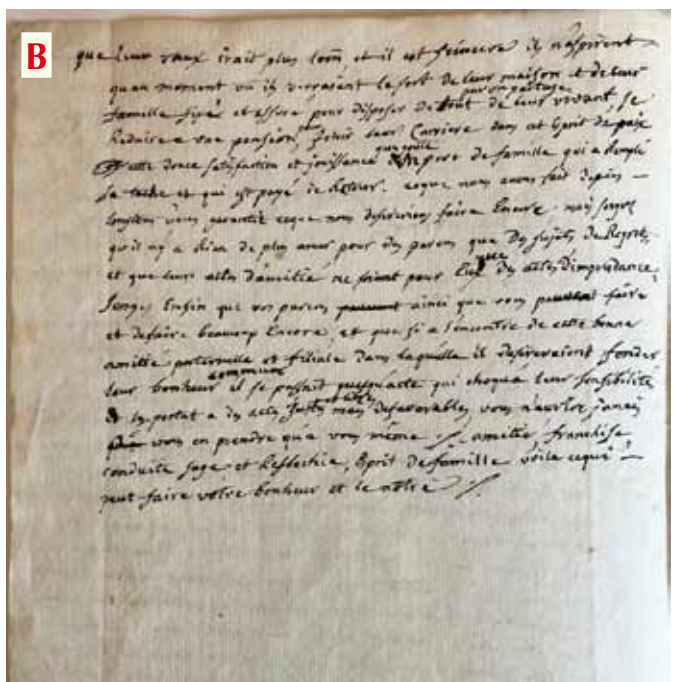 B
que leur vœux irait plus loin, et il est sincere ils n'aspirent
quau moment ou ils verraient le sort de leur maison et de leur
par un partage
famille fixé et assuré pour disposer de tout de leur vivant, se
Reduire a une pension, finir leur Carriere dans cet Esprit de paix
que goute
Cette douce satisfaction et jouissance pere de famille qui a Remplé
sa tache et qui est payé de Retour. ceque nous avons fait depuis
longtems vous garantit ceque nous desirerions faire Encore, mais songez
qu'il ny a Rien de plus amer pour des parens que Des sujets de Regrets,
et que leurs actes Damitié ne soient pour Eux que des actes dimprudence,
songez Enfin que vos parens ainci que vous peuvent faire
et defaire beaucoup Encore, et que si a l'encontre de cette bonne
amitié paternelle et filiale Dans laquelle il desireraient fonder
commun
leur bonheur il se passait acte qui choqua leur sensibilité
et les portat a des actes justes mais defavorables, vous n'auriez jamais
vous en prendre qua vous même //. amitié, franchise,
conduite sage et Reflechie, Esprit De famille voila cequi
peut faire votre bonheur et le nôtre //.